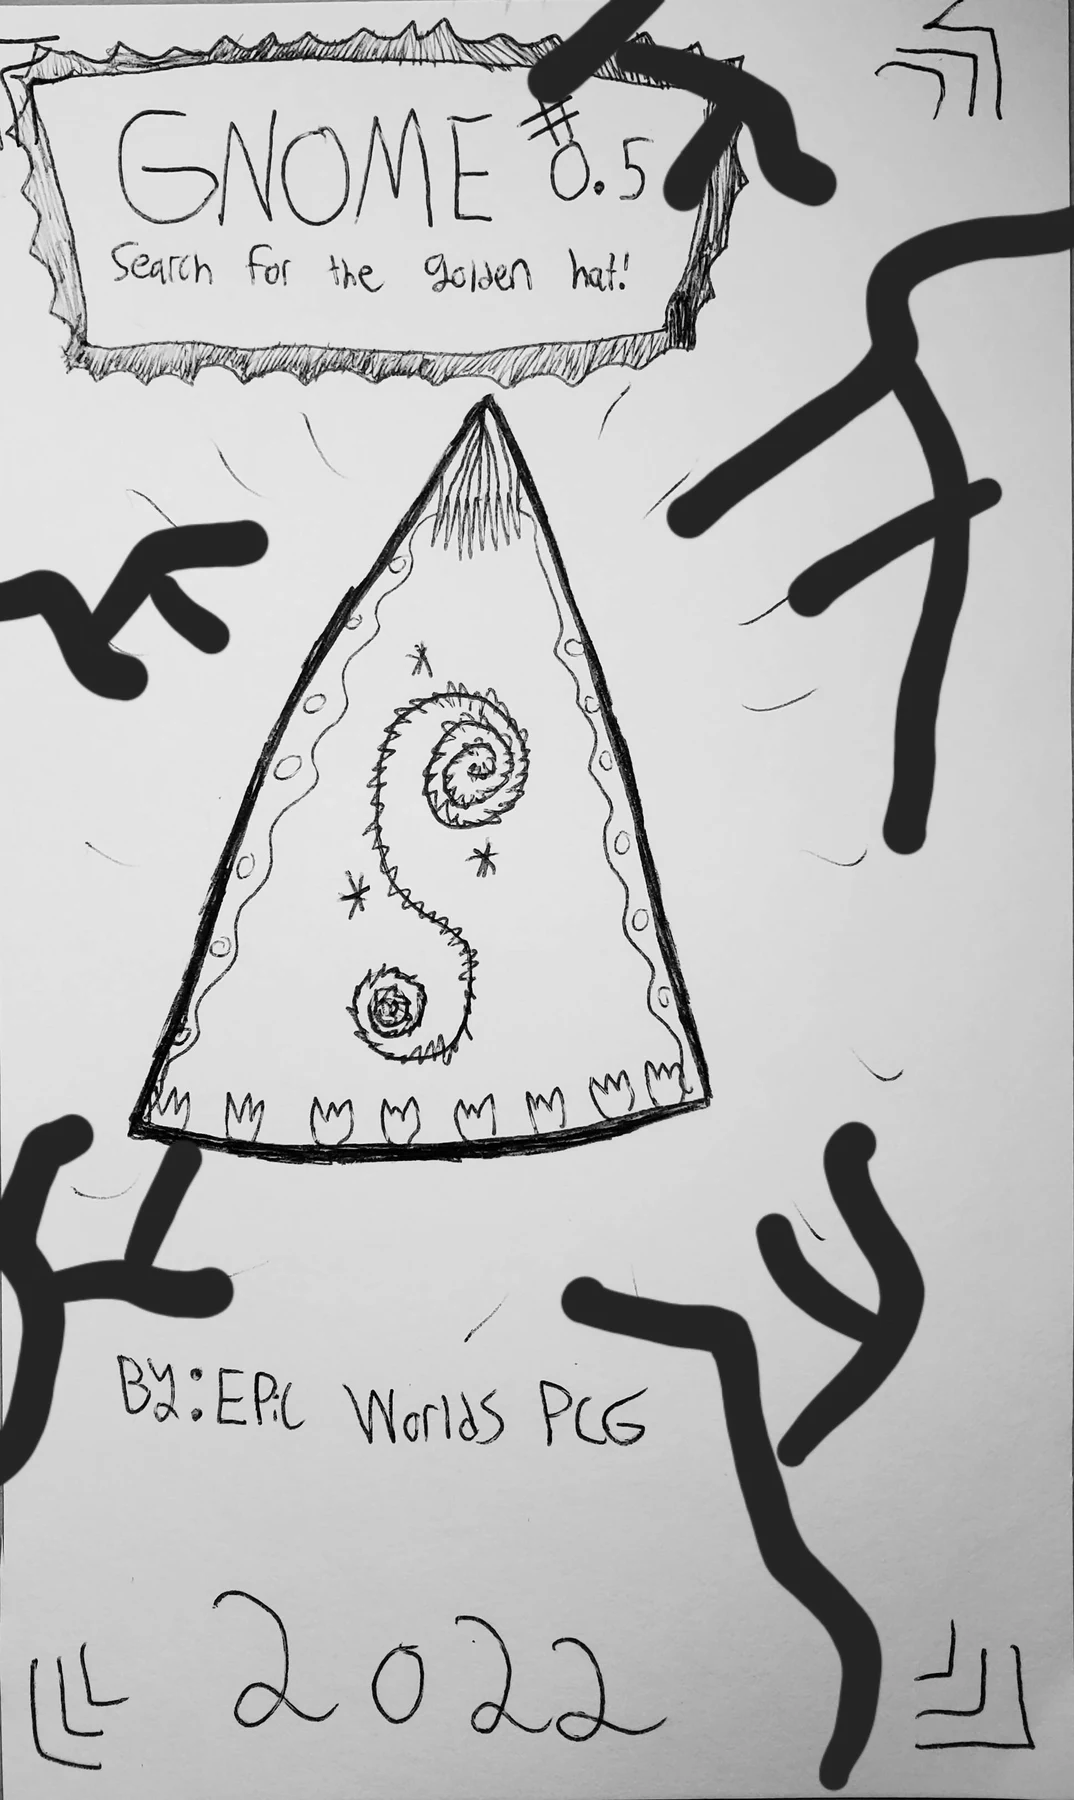 GNOME #0.5
Search for the golden hat!
By: EPic Worlds PCG
2022